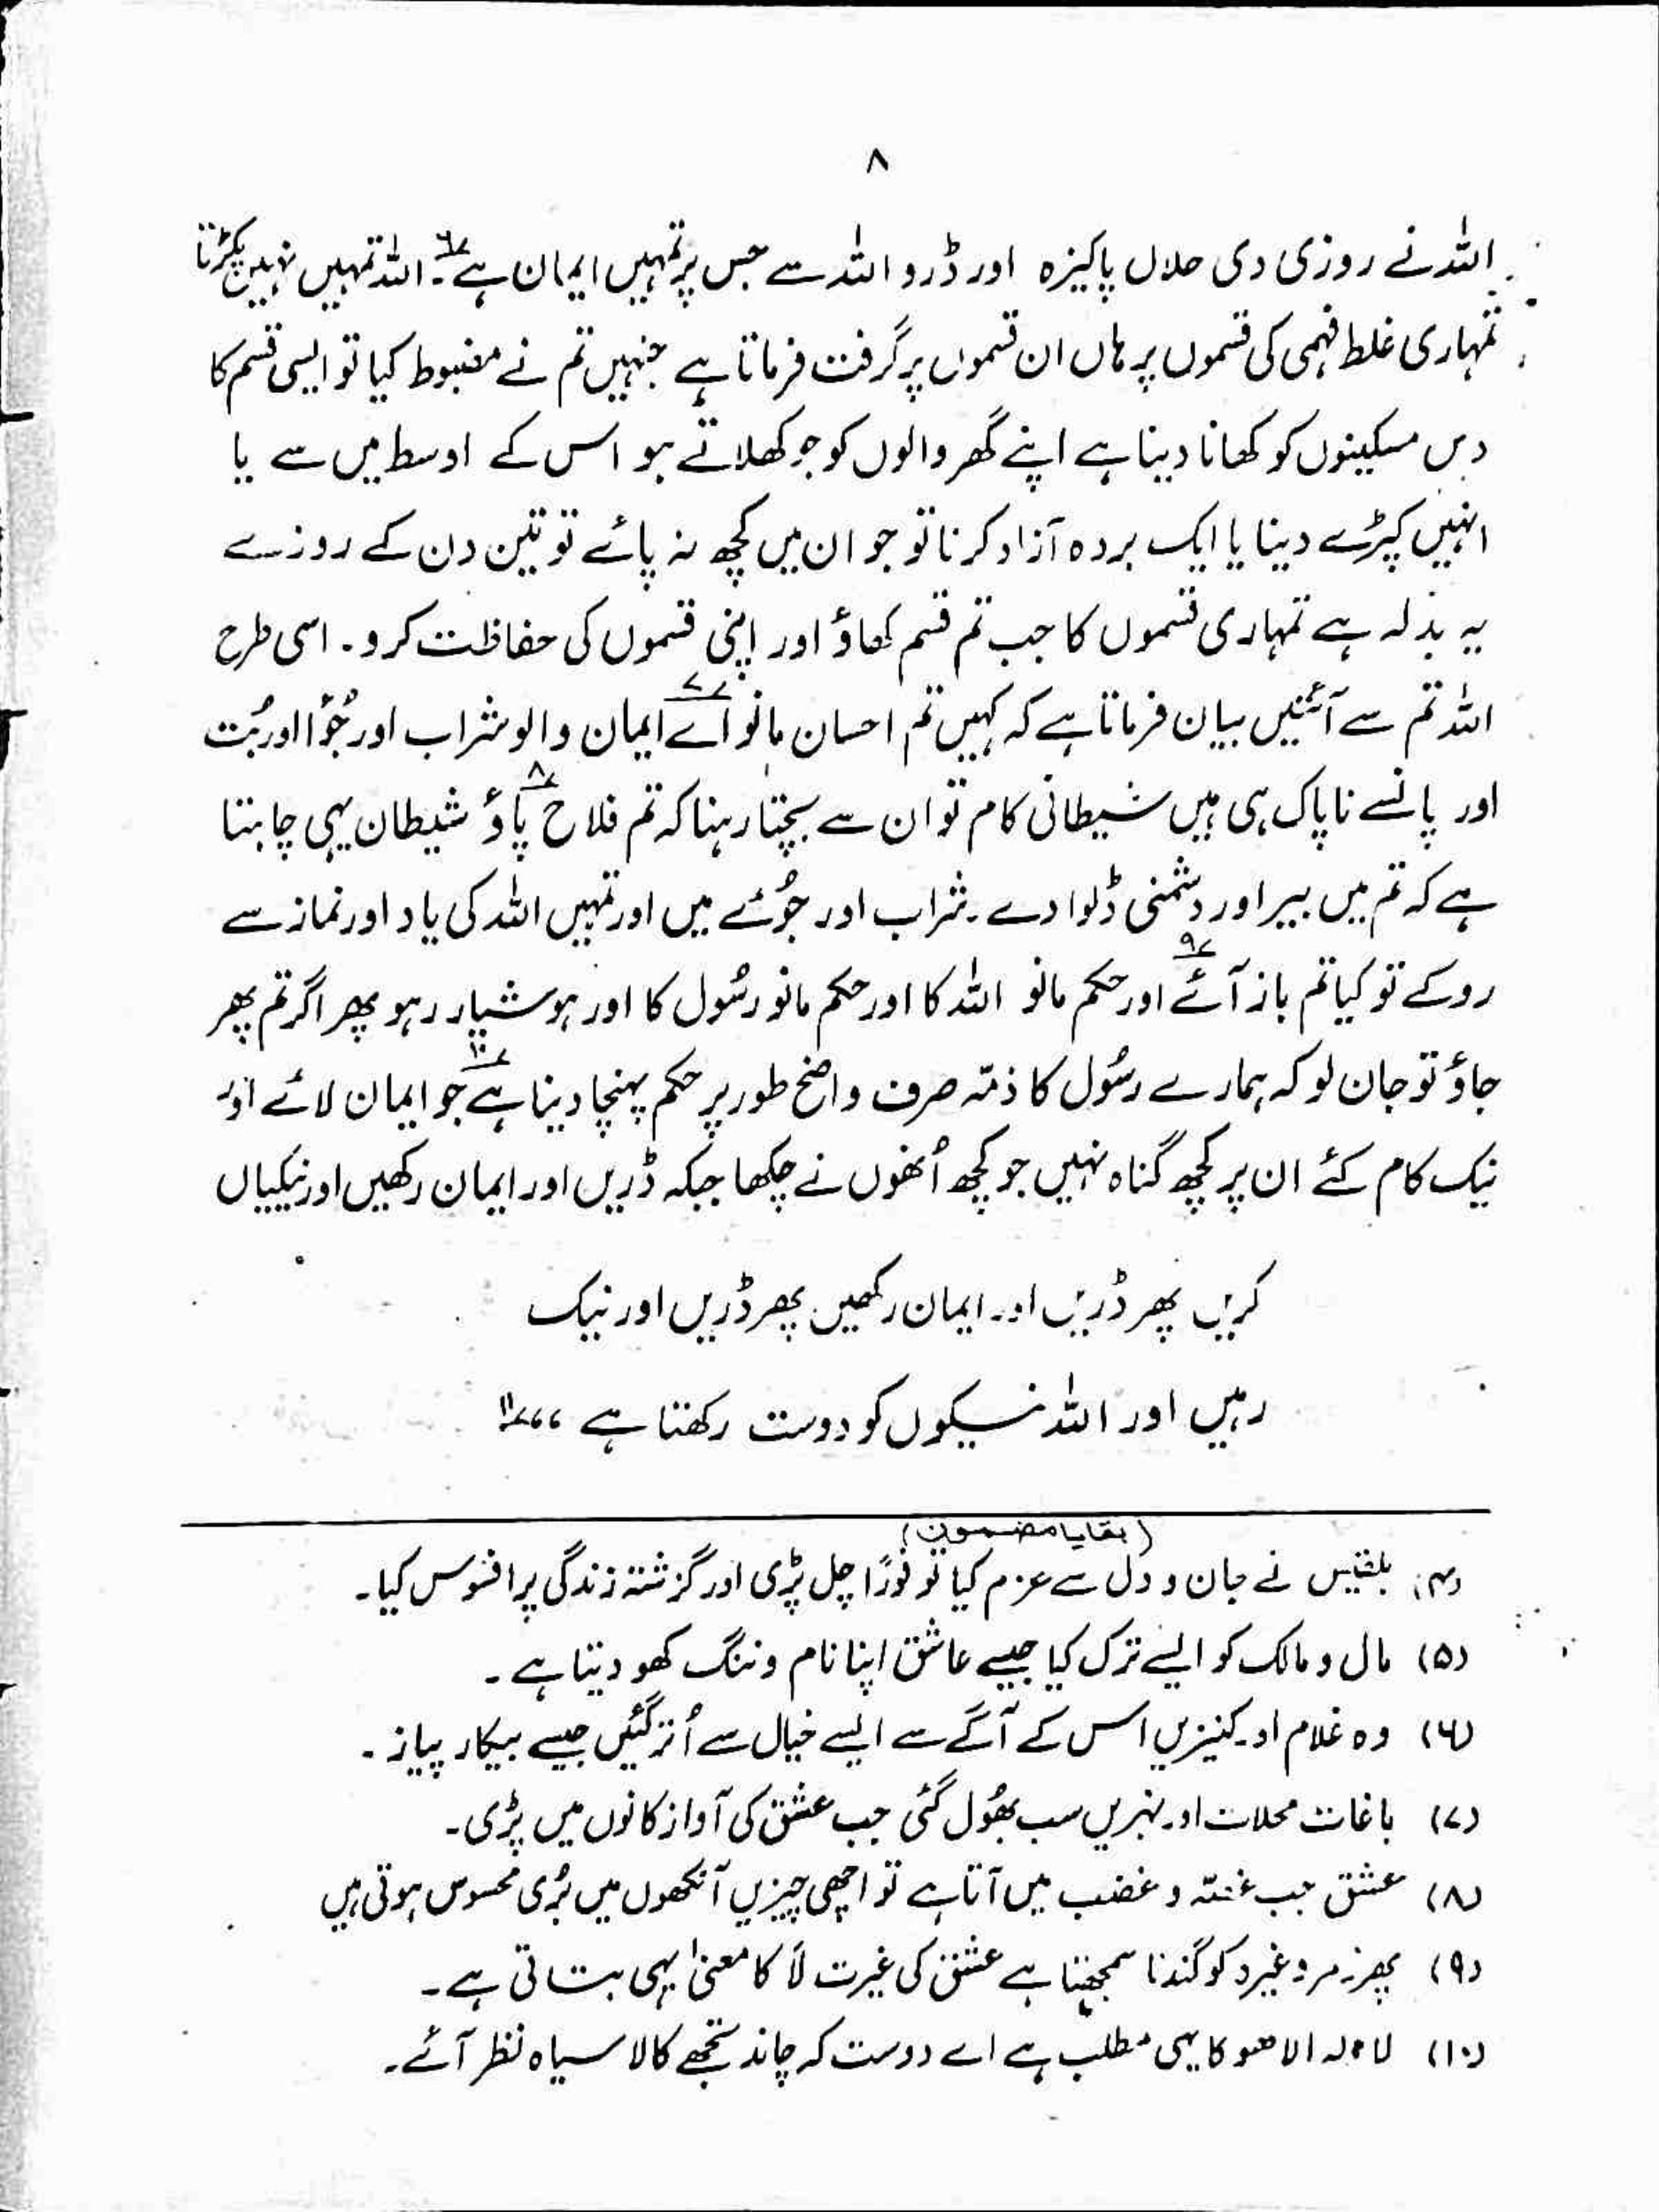 ۸
اللہ نے روزی دی حلال پاکیزہ اور ڈرو اللہ سے جس پر تمہیں ایمان ہے ۶؎۔ اللہ تمہیں نہیں پکڑتا
تمہاری غلط فہمی کی قسموں پر ہاں ان قسموں پر گرفت فرماتا ہے جنہیں تم نے مضبوط کیا تو ایسی قسم کا
دس مسکینوں کو کھانا دینا ہے اپنے گھر والوں کو جو کھلاتے ہو اس کے اوسط میں سے یا
انہیں کپڑے دینا یا ایک بردہ آزاد کرنا تو جو ان میں کچھ نہ پائے تو تین دن کے روزے
یہ بدلہ ہے تمہاری قسموں کا جب تم قسم کھاؤ اور اپنی قسموں کی حفاظت کرو۔ اسی طرح
اللہ تم سے آئتیں بیان فرماتا ہے کہ کہیں تم احسان مانو ۷؎ اے ایمان والو شراب اور جُوٴا اور بُت
اور پانسے ناپاک ہی ہیں شیطانی کام تو ان سے بچتا رہنا کہ تم فلاح پاؤ ۸؎ شیطان یہی چاہتا
ہے کہ تم میں بیر اور دشمنی ڈلوا دے۔ شراب اور جُوئے میں اور تمہیں اللہ کی یاد اور نماز سے
روکے تو کیا تم باز آئے ۹؎ اور حکم مانو اللہ کا اور حکم مانو رسُول کا اور ہوشیار رہو پھر اگر تم پھر
جاؤ تو جان لو کہ ہمارے رسُول کا ذمّہ صرف واضح طور پر حکم پہنچا دینا ہے ۱۰؎ جو ایمان لائے اور
نیک کام کئے ان پر کچھ گناہ نہیں جو کچھ اُنھوں نے چکھا جبکہ ڈریں اور ایمان رکھیں اور نیکیاں
کریں پھر ڈریں اور ایمان رکھیں پھر ڈریں اور نیک
رہیں اور اللہ نیکوں کو دوست رکھتا ہے ،، ۱۱؎
(بقایا مضمون)
(۴) بلقیس نے جان و دل سے عزم کیا تو فورًا چل پڑی اور گزشتہ زندگی پر افسوس کیا۔
(۵) مال و مالک کو ایسے ترک کیا جیسے عاشق اپنا نام و ننگ کھو دیتا ہے۔
(۶) وہ غلام اور کنیزیں اس کے آگے سے ایسے خیال سے اُتر گئیں جیسے بیکار پیاز۔
(۷) باغات محلات اور نہریں سب بھُول گئی جب عشق کی آواز کانوں میں پڑی۔
(۸) عشق جب غصّہ و غضب میں آتا ہے تو اچھی چیزیں آنکھوں میں بُری محسوس ہوتی ہیں
(۹) پھر زمرد وغیرہ کو گندنا سمجھتا ہے عشق کی غیرت لَا کا معنیٰ یہی بتاتی ہے۔
(۱۰) لا الہ الا ھو کا یہی مطلب ہے اے دوست کہ چاند تجھے کالا سیاہ نظر آئے۔